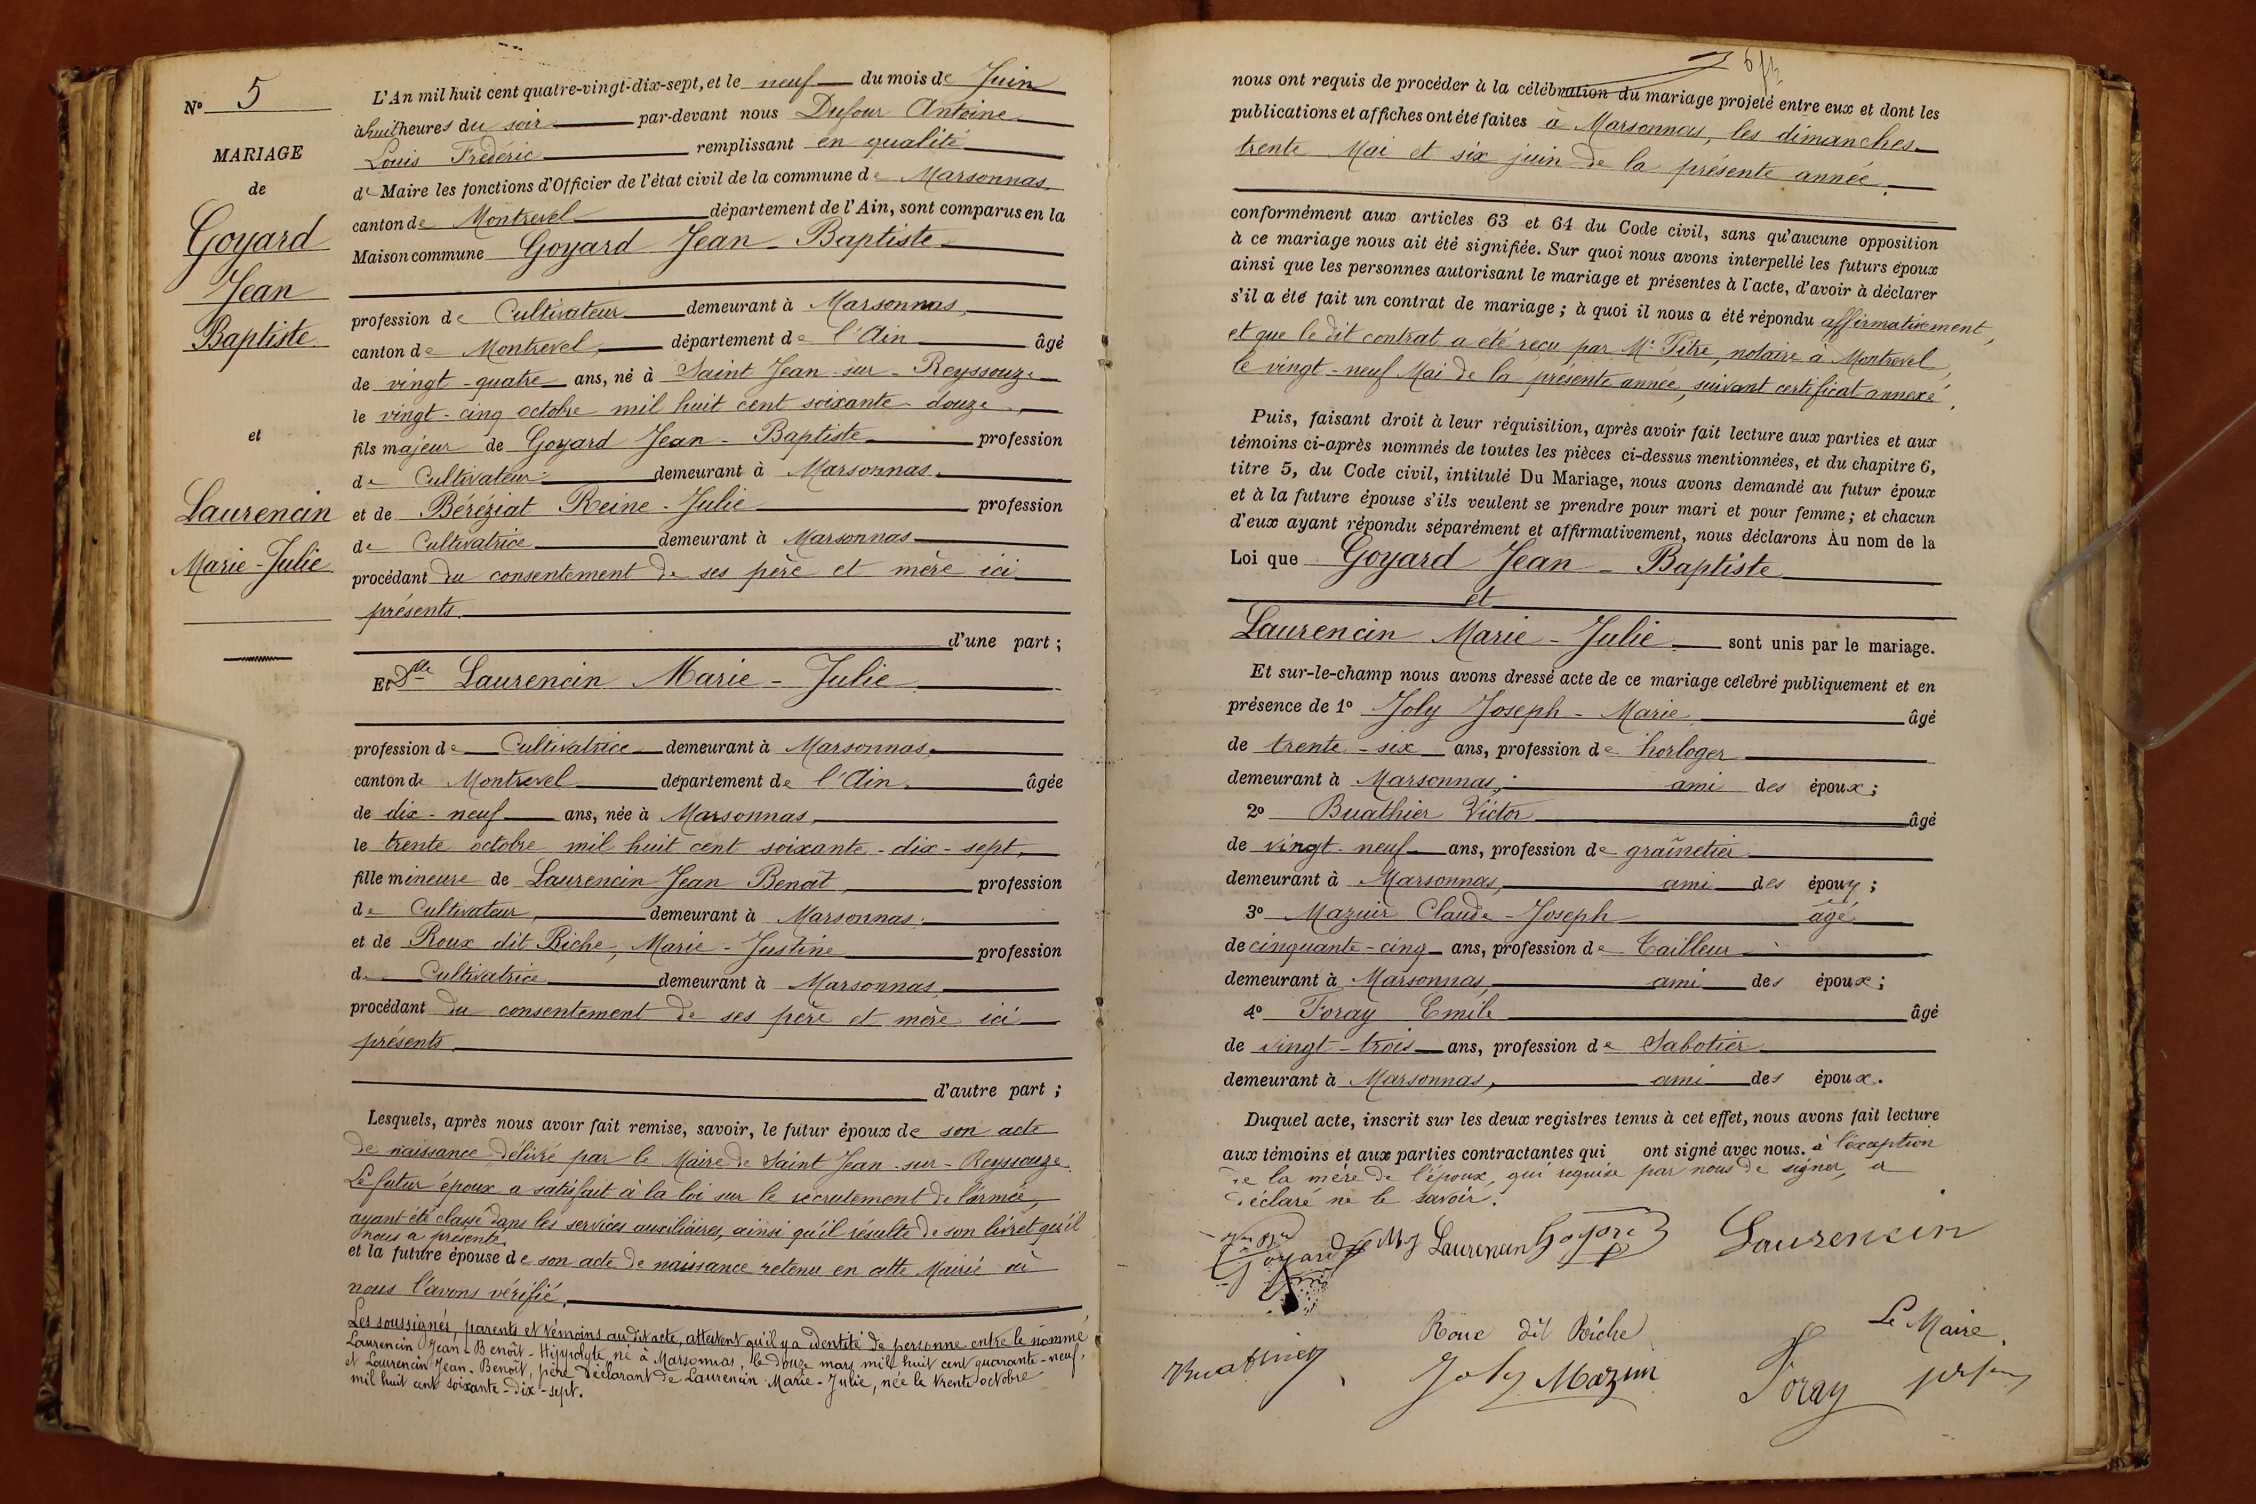 N° 5
MARIAGE
de
Goyard
Jean
Baptiste
et
Laurencin
Marie-Julie
L'An mil huit cent quatre-vingt-dix-sept, et le neuf du mois de Juin
à huit heures du soir par-devant nous Dufour Antoine
Louis Frédéric remplissant en qualité
de Maire les fonctions d'Officier de l'état civil de la commune de Marsonnas
canton de Montrevel département de l'Ain, sont comparus en la
Maison commune Goyard Jean-Baptiste
profession de Cultivateur demeurant à Marsonnas,
canton de Montrevel, département de l'Ain âgé
de vingt-quatre ans, né à Saint Jean-sur-Reyssouze
le vingt-cinq octobre mil huit cent soixante-douze,
fils majeur de Goyard Jean-Baptiste profession
de Cultivateur demeurant à Marsonnas
et de Béréziat Reine-Julie profession
de Cultivatrice demeurant à Marsonnas
procédant du consentement de ses père et mère ici
présents.
d'une part ;
Et Dlle Laurencin Marie-Julie
profession de Cultivatrice demeurant à Marsonnas,
canton de Montrevel département de l'Ain. âgée
de dix-neuf ans, née à Marsonnas,
le trente octobre mil huit cent soixante-dix-sept,
fille mineure de Laurencin Jean Benoît, profession
de Cultivateur, demeurant à Marsonnas,
et de Roux dit Riche, Marie-Justine profession
de Cultivatrice demeurant à Marsonnas,
procédant du consentement de ses père et mère ici
présents.
d'autre part ;
Lesquels, après nous avoir fait remise, savoir, le futur époux de son acte
de naissance délivré par le Maire de Saint Jean-sur-Reyssouze.
Le futur époux a satisfait à la loi sur le recrutement de l'armée,
ayant été classé dans les services auxiliaires, ainsi qu'il résulte de son livret qu'il
nous a présenté
et la future épouse de son acte de naissance retenu en cette Mairie où
nous l'avons vérifié.
Les soussignés, parents et témoins au dit acte, attestent qu'il y a identité de personne entre le nommé
Laurencin Jean-Benoît-Hippolyte né à Marsonnas, le douze mars mil huit cent quarante-neuf,
et Laurencin Jean-Benoît, père déclarant de Laurencin Marie-Julie, née le trente octobre
mil huit cent soixante-dix-sept.
nous ont requis de procéder à la célébration du mariage projeté entre eux et dont les
publications et affiches ont été faites à Marsonnas, les dimanches
trente Mai et six juin de la présente année.
conformément aux articles 63 et 64 du Code civil, sans qu'aucune opposition
à ce mariage nous ait été signifiée. Sur quoi nous avons interpellé les futurs époux
ainsi que les personnes autorisant le mariage et présentes à l'acte, d'avoir à déclarer
s'il a été fait un contrat de mariage ; à quoi il nous a été répondu affirmativement,
et que le dit contrat a été reçu par Me Pitre, notaire à Montrevel,
le vingt-neuf Mai de la présente année, suivant certificat annexé.
Puis, faisant droit à leur réquisition, après avoir fait lecture aux parties et aux
témoins ci-après nommés de toutes les pièces ci-dessus mentionnées, et du chapitre 6,
titre 5, du Code civil, intitulé Du Mariage, nous avons demandé au futur époux
et à la future épouse s'ils veulent se prendre pour mari et pour femme ; et chacun
d'eux ayant répondu séparément et affirmativement, nous déclarons Au nom de la
Loi que Goyard Jean-Baptiste
et
Laurencin Marie-Julie sont unis par le mariage.
Et sur-le-champ nous avons dressé acte de ce mariage célébré publiquement et en
présence de 1° Joly Joseph-Marie âgé
de trente-six ans, profession de horloger
demeurant à Marsonnas, ami des époux ;
2° Buathier Victor âgé
de vingt-neuf ans, profession de grainetier
demeurant à Marsonnas, ami des époux ;
3° Mazuir Claude-Joseph âgé
de cinquante-cinq ans, profession de Tailleur
demeurant à Marsonnas, ami des époux ;
4° Foray Emile âgé
de vingt-trois ans, profession de Sabotier
demeurant à Marsonnas, ami des époux.
Duquel acte, inscrit sur les deux registres tenus à cet effet, nous avons fait lecture
aux témoins et aux parties contractantes qui ont signé avec nous. à l'exception
de la mère de l'époux, qui requise par nous de signer, a
déclaré ne le savoir.
Goyard MJ Laurencin Goyard Laurencin
Roux dit Riche Le Maire,
Buathier Joly Mazuir Foray